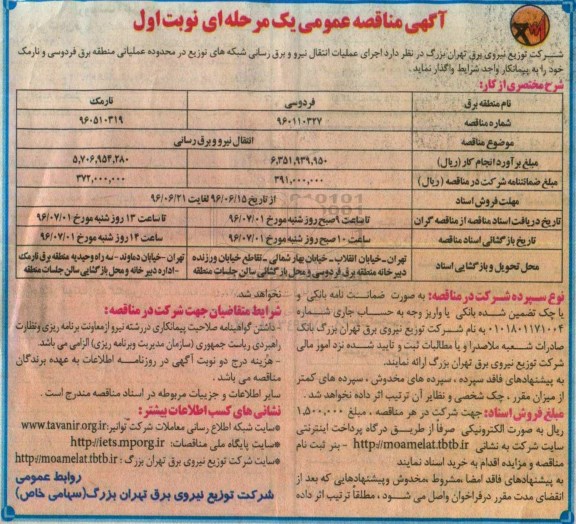 آگهی مناقصه عمومی یک مرحله ای نوبت اول
شرکت توزیع نیروی برق تهران بزرگ در نظر دارد اجرای عملیات انتقال نیرو و برق رسانی شبکه های توزیع در محدوده عملیاتی منطقه برق فردوسی و نارمک
خود را به پیمانکار واجد شرایط واگذار نماید.
شرح مختصری از کار:
نام منطقه برق فردوسی نارمک
شماره مناقصه ۹۶۰۱۱۰۳۲۷ ۹۶۰۵۱۰۳۱۹
موضوع مناقصه انتقال نیرو و برق رسانی
مبلغ برآورد انجام کار (ریال) ۶,۳۵۱,۹۳۹,۹۵۰ ۵,۷۰۶,۹۵۴,۲۸۰
مبلغ ضمانتنامه شرکت در مناقصه (ریال) ۳۹۱,۰۰۰,۰۰۰ ۳۷۲,۰۰۰,۰۰۰
مهلت فروش اسناد از تاریخ ۹۶/۰۶/۱۵ لغایت ۹۶/۰۶/۲۱
تاریخ دریافت اسناد مناقصه از مناقصه گران تا ساعت ۹ صبح روز شنبه مورخ ۹۶/۰۷/۰۱ تا ساعت ۱۳ روز شنبه مورخ ۹۶/۰۷/۰۱
تاریخ بازگشائی اسناد مناقصه ساعت ۱۰ صبح روز شنبه مورخ ۹۶/۰۷/۰۱ ساعت ۱۴ روز شنبه مورخ ۹۶/۰۷/۰۱
محل تحویل و بازگشایی اسناد تهران-خیابان انقلاب-خیابان بهار شمالی-تقاطع خیابان ورزنده دبیرخانه منطقه برق فردوسی و محل بازگشائی سالن جلسات منطقه تهران-خیابان دماوند-سه راه وحیدیه منطقه برق نارمک-اداره دبیرخانه و محل بازگشایی سالن جلسات منطقه
نوع سپرده شرکت در مناقصه: به صورت ضمانت نامه بانکی و
یا چک تضمین شده بانکی یا واریز وجه به حساب جاری شماره
۰۱۰۱۸۰۱۱۷۱۰۰۴ به نام شرکت توزیع نیروی برق تهران بزرگ بانک
صادرات شعبه ملاصدرا و یا مطالبات ثبت و تایید شده نزد امور مالی
شرکت توزیع نیروی برق تهران بزرگ ارائه نمایند.
به پیشنهادهای فاقد سپرده، سپرده های مخدوش، سپرده های کمتر
از میزان مقرر، چک شخصی و نظایر آن ترتیب اثر داده نخواهد شد.
مبلغ فروش اسناد: جهت شرکت در هر مناقصه، مبلغ ۱,۵۰۰,۰۰۰
ریال به صورت الکترونیکی صرفاً از طریق درگاه پرداخت اینترنتی
سایت شرکت به نشانی http://moamelat.tbtb.ir - بنر ثبت نام
مناقصه و مزایده اقدام به خرید اسناد نمایند
به پیشنهادهای فاقد امضا، مشروط، مخدوش و پیشنهادهایی که بعد از
انقضای مدت مقرر در فراخوان واصل می شود، مطلقاً ترتیب اثر داده
نخواهد شد.
شرایط متقاضیان جهت شرکت در مناقصه:
- داشتن گواهینامه صلاحیت پیمانکاری در رشته نیرو از معاونت برنامه ریزی و نظارت
راهبردی ریاست جمهوری (سازمان مدیریت و برنامه ریزی) الزامی می باشد.
- هزینه درج دو نوبت آگهی در روزنامه اطلاعات به عهده برندگان
مناقصه می باشد.
سایر اطلاعات و جزییات مربوطه در اسناد مناقصه مندرج است.
نشانی های کسب اطلاعات بیشتر:
*سایت شبکه اطلاع رسانی معاملات شرکت توانیر: www.tavanir.org.ir
*سایت پایگاه ملی مناقصات: http://iets.mporg.ir
*سایت شرکت توزیع نیروی برق تهران بزرگ: http://moamelat.tbtb.ir
روابط عمومی
شرکت توزیع نیروی برق تهران بزرگ (سهامی خاص)